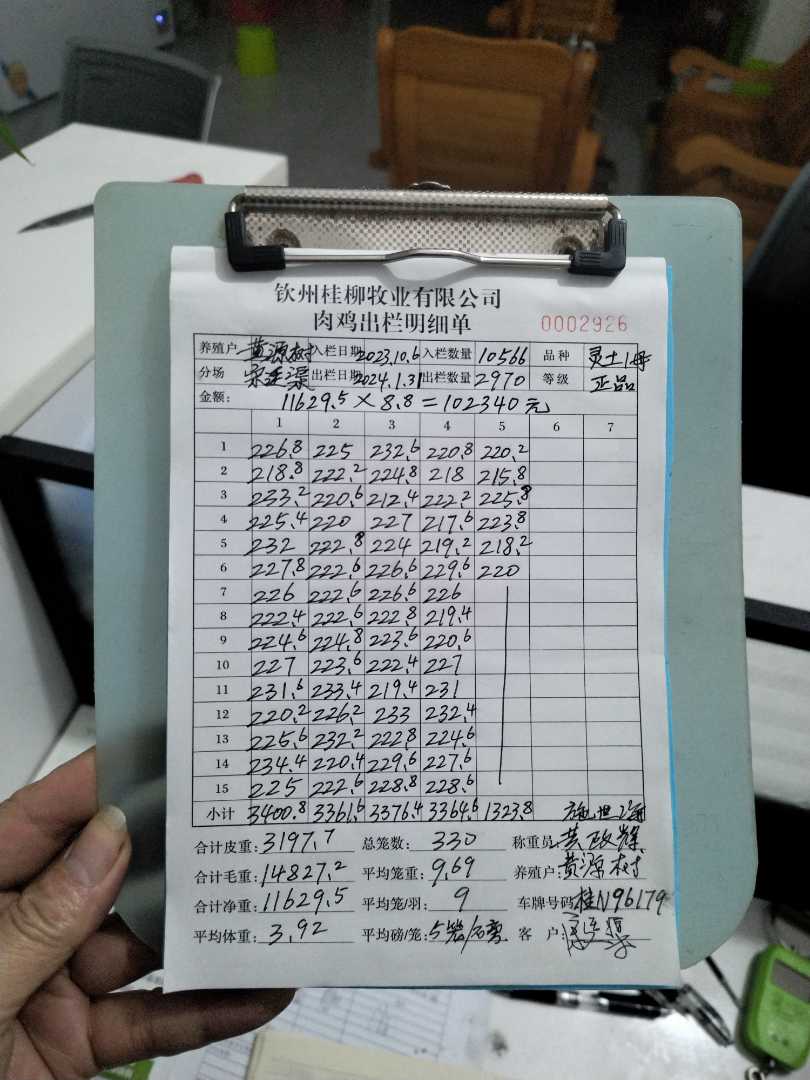 钦州桂柳牧业有限公司
肉鸡出栏明细单 0002926
养殖户 黄源树 入栏日期 2023.10.6 入栏数量 10566 品种 灵土1号
分场 出栏日期 2024.1.31 出栏数量 2970 等级 正品
金额: 11629.5 × 8.8 = 102340元
1 2 3 4 5 6 7
1 226.8 225 232.6 220.8 220.2
2 218.8 222.2 224.8 218 215.8
3 233.2 220.6 212.4 222.2 225.8
4 225.4 220 227 217.6 223.8
5 232 222.8 224 219.2 218.2
6 227.8 222.6 226.6 229.6 220
7 226 222.6 226.6 226
8 222.4 222.6 222.8 219.4
9 224.6 224.8 223.6 220.6
10 227 223.6 222.4 227
11 231.6 233.4 219.4 231
12 220.2 226.2 233 232.4
13 225.6 232.2 222.8 224.6
14 234.4 220.4 229.6 227.6
15 225 222.6 228.8 228.6
小计 3400.8 3361.6 3376.4 3364.6 1323.8
合计皮重: 3197.7 总笼数: 330 称重员: 黄政辉
合计毛重: 14827.2 平均笼重: 9.69 养殖户: 黄源树
合计净重: 11629.5 平均笼/羽: 9 车牌号码: 桂N96179
平均体重: 3.92 平均磅/笼: 客户: